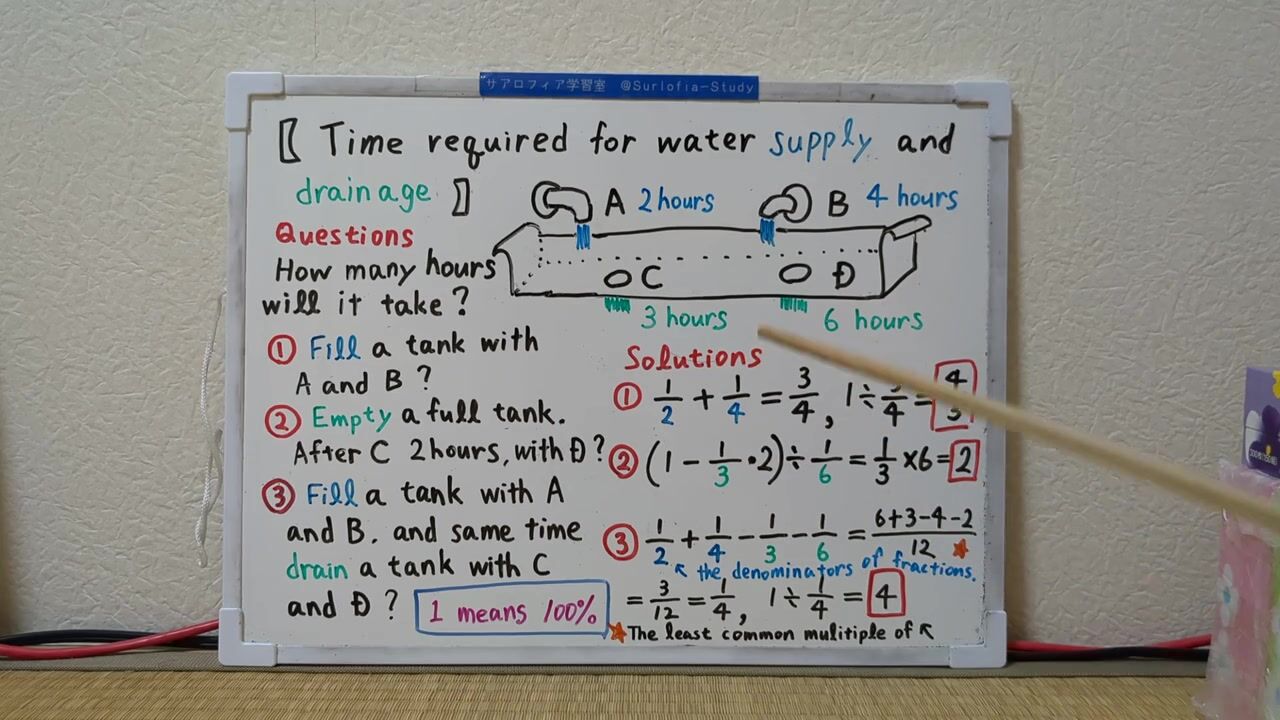 サアロフィア学習室 @Surlofia-Study
【 Time required for water supply and
drainage 】
A 2 hours
B 4 hours
C
D
3 hours
6 hours
Questions
How many hours
will it take?
① Fill a tank with
A and B?
② Empty a full tank.
After C 2 hours, with D?
③ Fill a tank with A
and B, and same time
drain a tank with C
and D?
1 means 100%
Solutions
① 1/2 + 1/4 = 3/4, 1÷ /4 = 4/3
② (1 - 1/3 • 2) ÷ 1/6 = 1/3 ×6= 2
③ 1/2 + 1/4 - 1/3 - 1/6 = 6+3-4-2/12 ★
↖ the denominators of fractions.
= 3/12 = 1/4, 1÷ 1/4 = 4
★The least common mulitiple of ↖